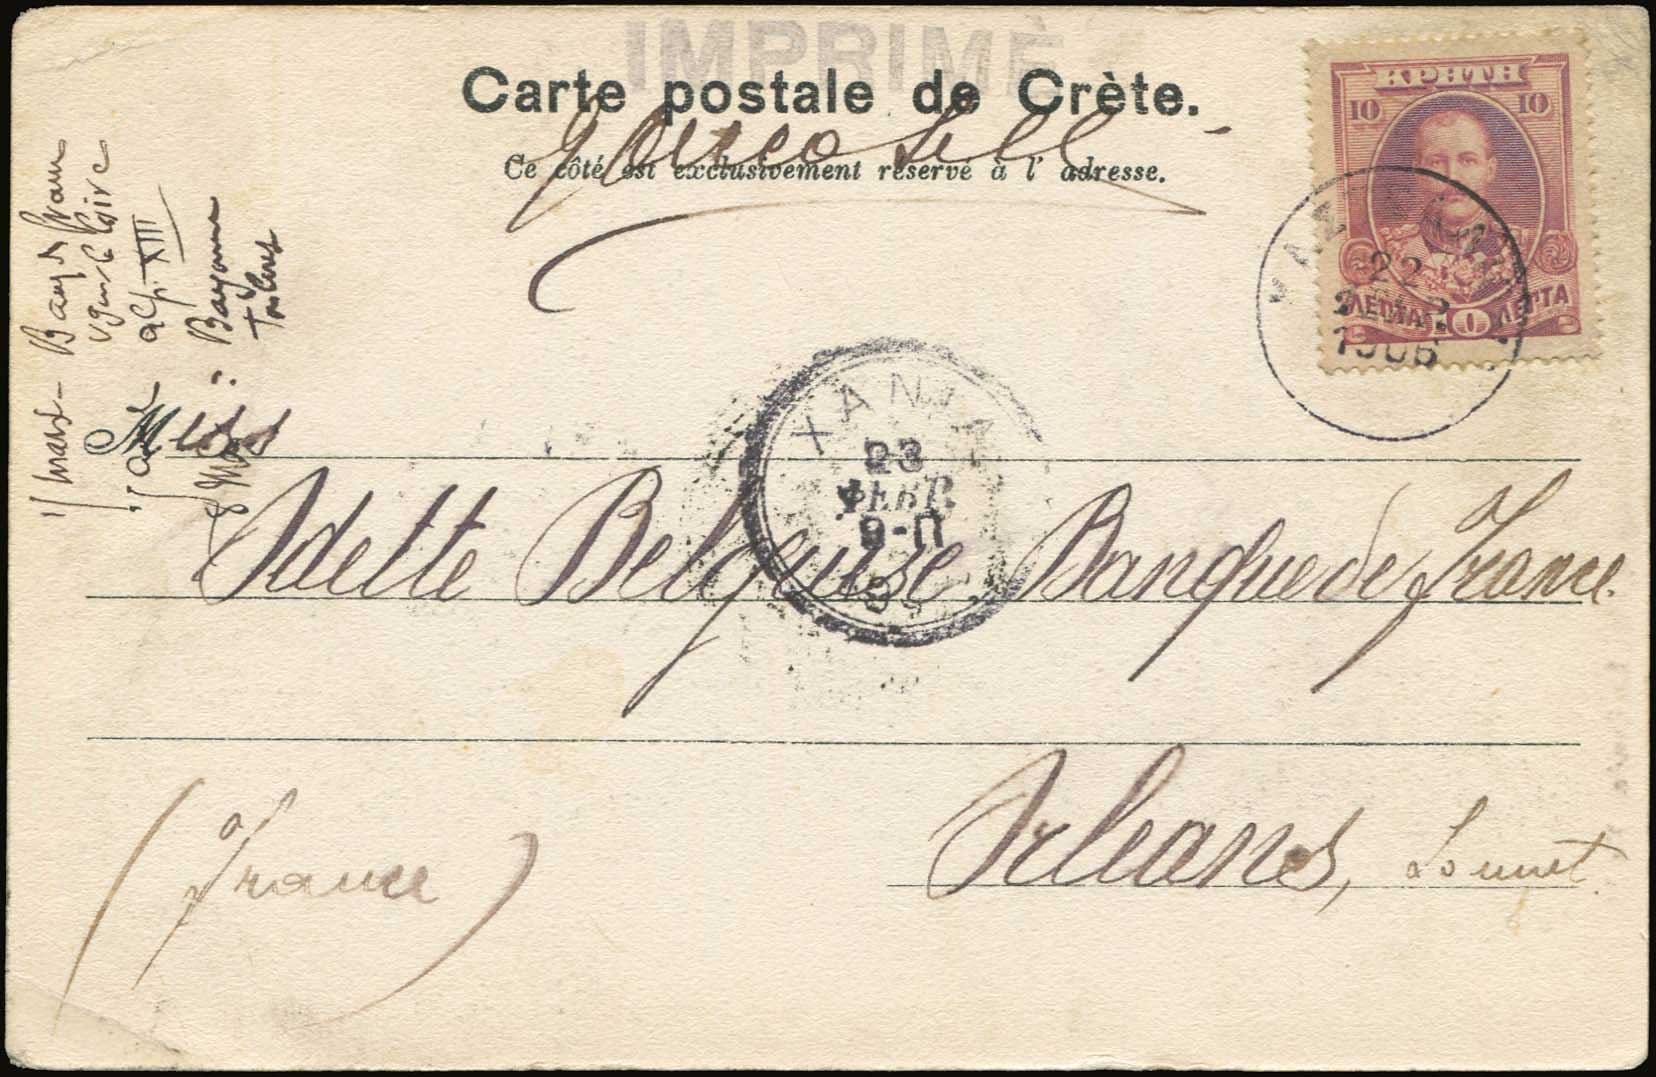 IMPRIMÉ
Carte postale de Crète.
Ce côté est exclusivement réservé à l' adresse.
ΚΡΗΤΗ
10 10
ΛΕΠΤΑ 10 ΛΕΠΤΑ
22
1906
ΧΑΝΙΑ
23
ΦΕΒΡ.
9-Π
Miss
Odette Belguise Banque de France.
Orleans, Loiret.
(France)
XIII
Bayonne